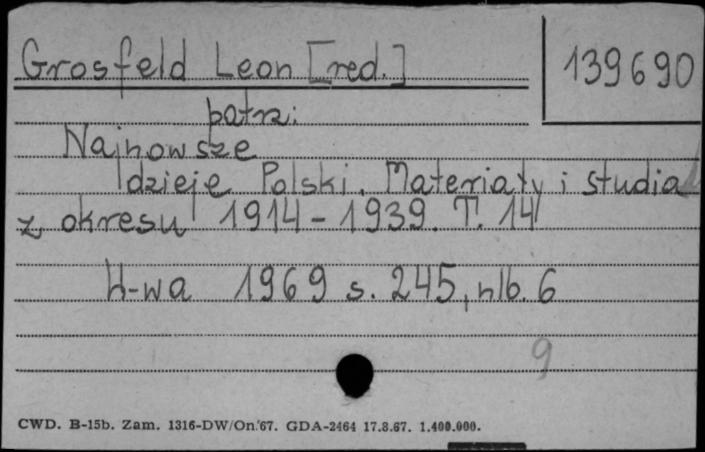 Grosfeld Leon [red.]
139690
patrz:
Najnowsze
dzieje Polski. Materiały i studia
z okresu 1914-1939. T. 14
W-wa 1969 s. 245, nlb. 6
9
CWD. B-15b. Zam. 1316-DW/On.67. GDA-2464 17.8.67. 1.400.000.